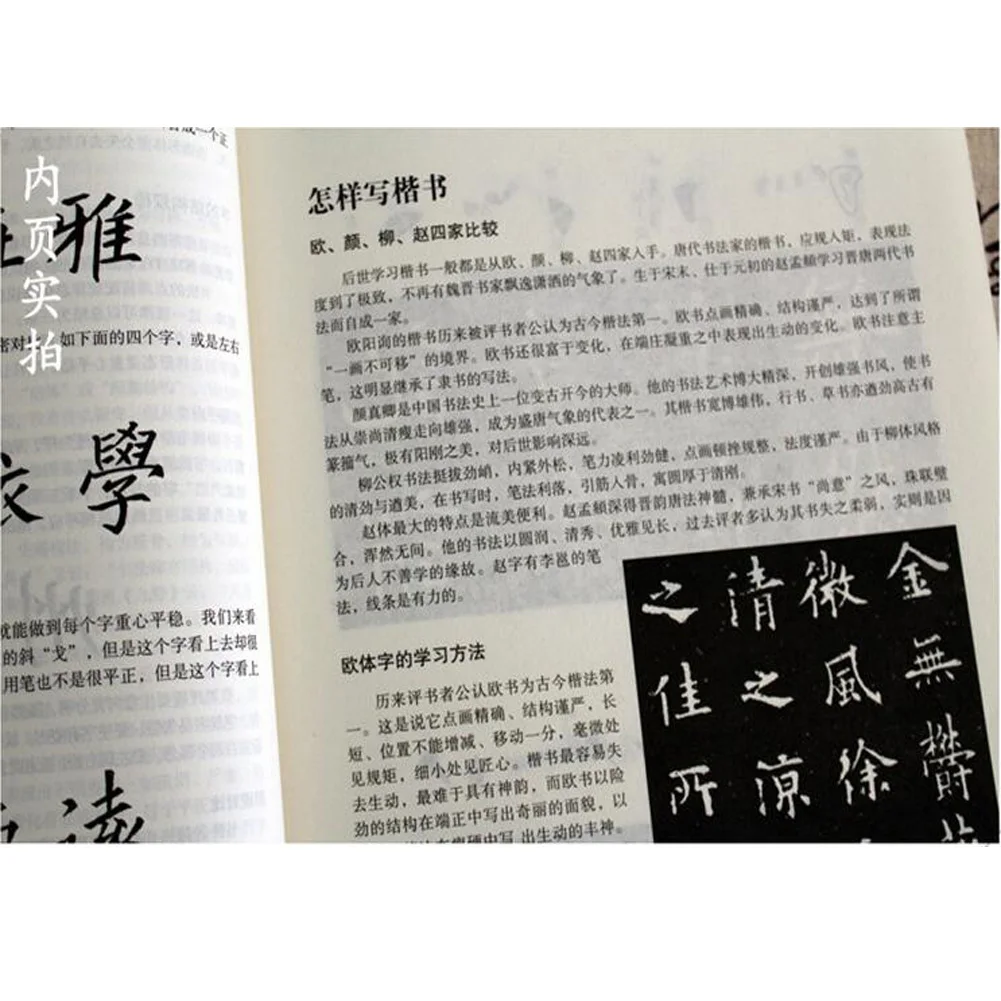 内页实拍
雅
如下面的四个字，或是左右
學
就能做到每个字重心平稳。我们来看
的斜“戈”，但是这个字看上去却很
用笔也不是很平正，但是这个字看上
遠
怎样写楷书
欧、颜、柳、赵四家比较
后世学习楷书一般都是从欧、颜、柳、赵四家入手。唐代书法家的楷书，应规人矩，表现法
度到了极致，不再有魏晋书家飘逸潇洒的气象了。生于宋末、仕于元初的赵孟頫学习晋唐两代书
法而自成一家。
欧阳询的楷书历来被评书者公认为古今楷法第一。欧书点画精确、结构谨严，达到了所谓
“一画不可移”的境界。欧书还很富于变化，在端庄凝重之中表现出生动的变化。欧书注意主
笔，这明显继承了隶书的写法。
颜真卿是中国书法史上一位变古开今的大师。他的书法艺术博大精深，开创雄强书风，使书
法从崇尚清瘦走向雄强，成为盛唐气象的代表之一。其楷书宽博雄伟，行书、草书亦遒劲高古有
篆籀气，极有阳刚之美，对后世影响深远。
柳公权书法挺拔劲峭，内紧外松，笔力凌利劲健，点画顿挫规整，法度谨严。由于柳体风格
的清劲与遒美，在书写时，笔法利落，引筋人骨，寓圆厚于清刚。
赵体最大的特点是流美便利。赵孟頫深得晋韵唐法神髓，兼承宋书“尚意”之风，珠联璧
合，浑然无间。他的书法以圆润、清秀、优雅见长，过去评者多认为其书失之柔弱，实则是因
为后人不善学的缘故。赵字有李邕的笔
法，线条是有力的。
欧体字的学习方法
历来评书者公认欧书为古今楷法第
一。这是说它点画精确、结构谨严，长
短、位置不能增减、移动一分，毫微处
见规矩，细小处见匠心。楷书最容易失
去生动，最难于具有神韵，而欧书以险
劲的结构在端正中写出奇丽的面貌，以
中写出生动的丰神。
金無欝
微風徐
清之凉
之佳所